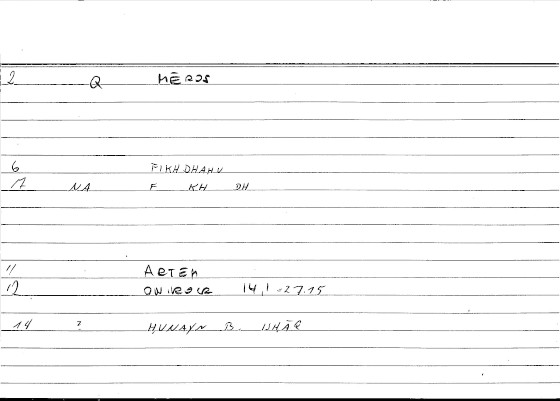 2 Q MĒROS
6 FIKHDHAHU
17 NA F KH DH
11 ARTEM
12 ONIROCR 14,1-27.15
14 ? HUNAYN B. ISHĀQ